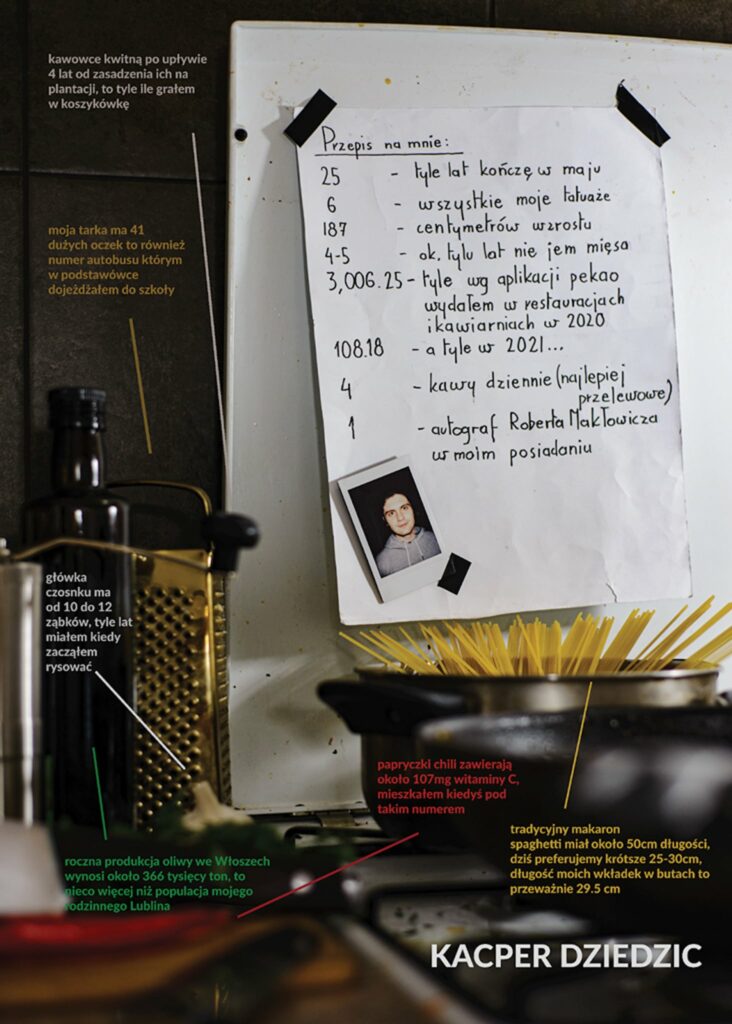 kawowce kwitną po upływie
4 lat od zasadzenia ich na
plantacji, to tyle ile grałem
w koszykówkę
Przepis na mnie:
25 - tyle lat kończę w maju
6 - wszystkie moje tatuaże
187 - centymetrów wzrostu
4-5 - ok. tylu lat nie jem mięsa
3,006.25 - tyle wg aplikacji pekao
wydałem w restauracjach
i kawiarniach w 2020
108.18 - a tyle w 2021...
4 - kawy dziennie (najlepiej
przelewowe)
1 - autograf Roberta Makłowicza
w moim posiadaniu
moja tarka ma 41
dużych oczek to również
numer autobusu którym
w podstawówce
dojeżdżałem do szkoły
główka
czosnku ma
od 10 do 12
ząbków, tyle lat
miałem kiedy
zacząłem
rysować
papryczki chili zawierają
około 107mg witaminy C,
mieszkałem kiedyś pod
takim numerem
tradycyjny makaron
spaghetti miał około 50cm długości,
dziś preferujemy krótsze 25-30cm,
długość moich wkładek w butach to
przeważnie 29.5 cm
roczna produkcja oliwy we Włoszech
wynosi około 366 tysięcy ton, to
nieco więcej niż populacja mojego
rodzinnego Lublina
KACPER DZIEDZIC